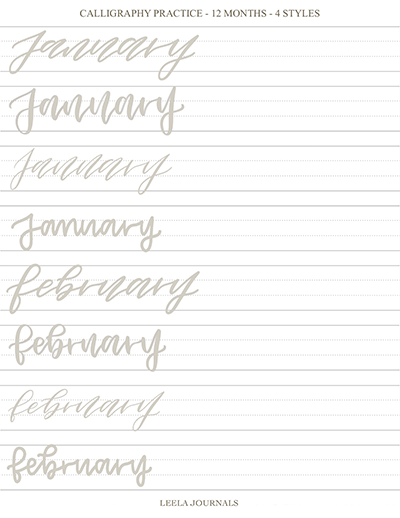 CALLIGRAPHY PRACTICE - 12 MONTHS - 4 STYLES
January
January
January
January
february
february
february
february
LEELA JOURNALS